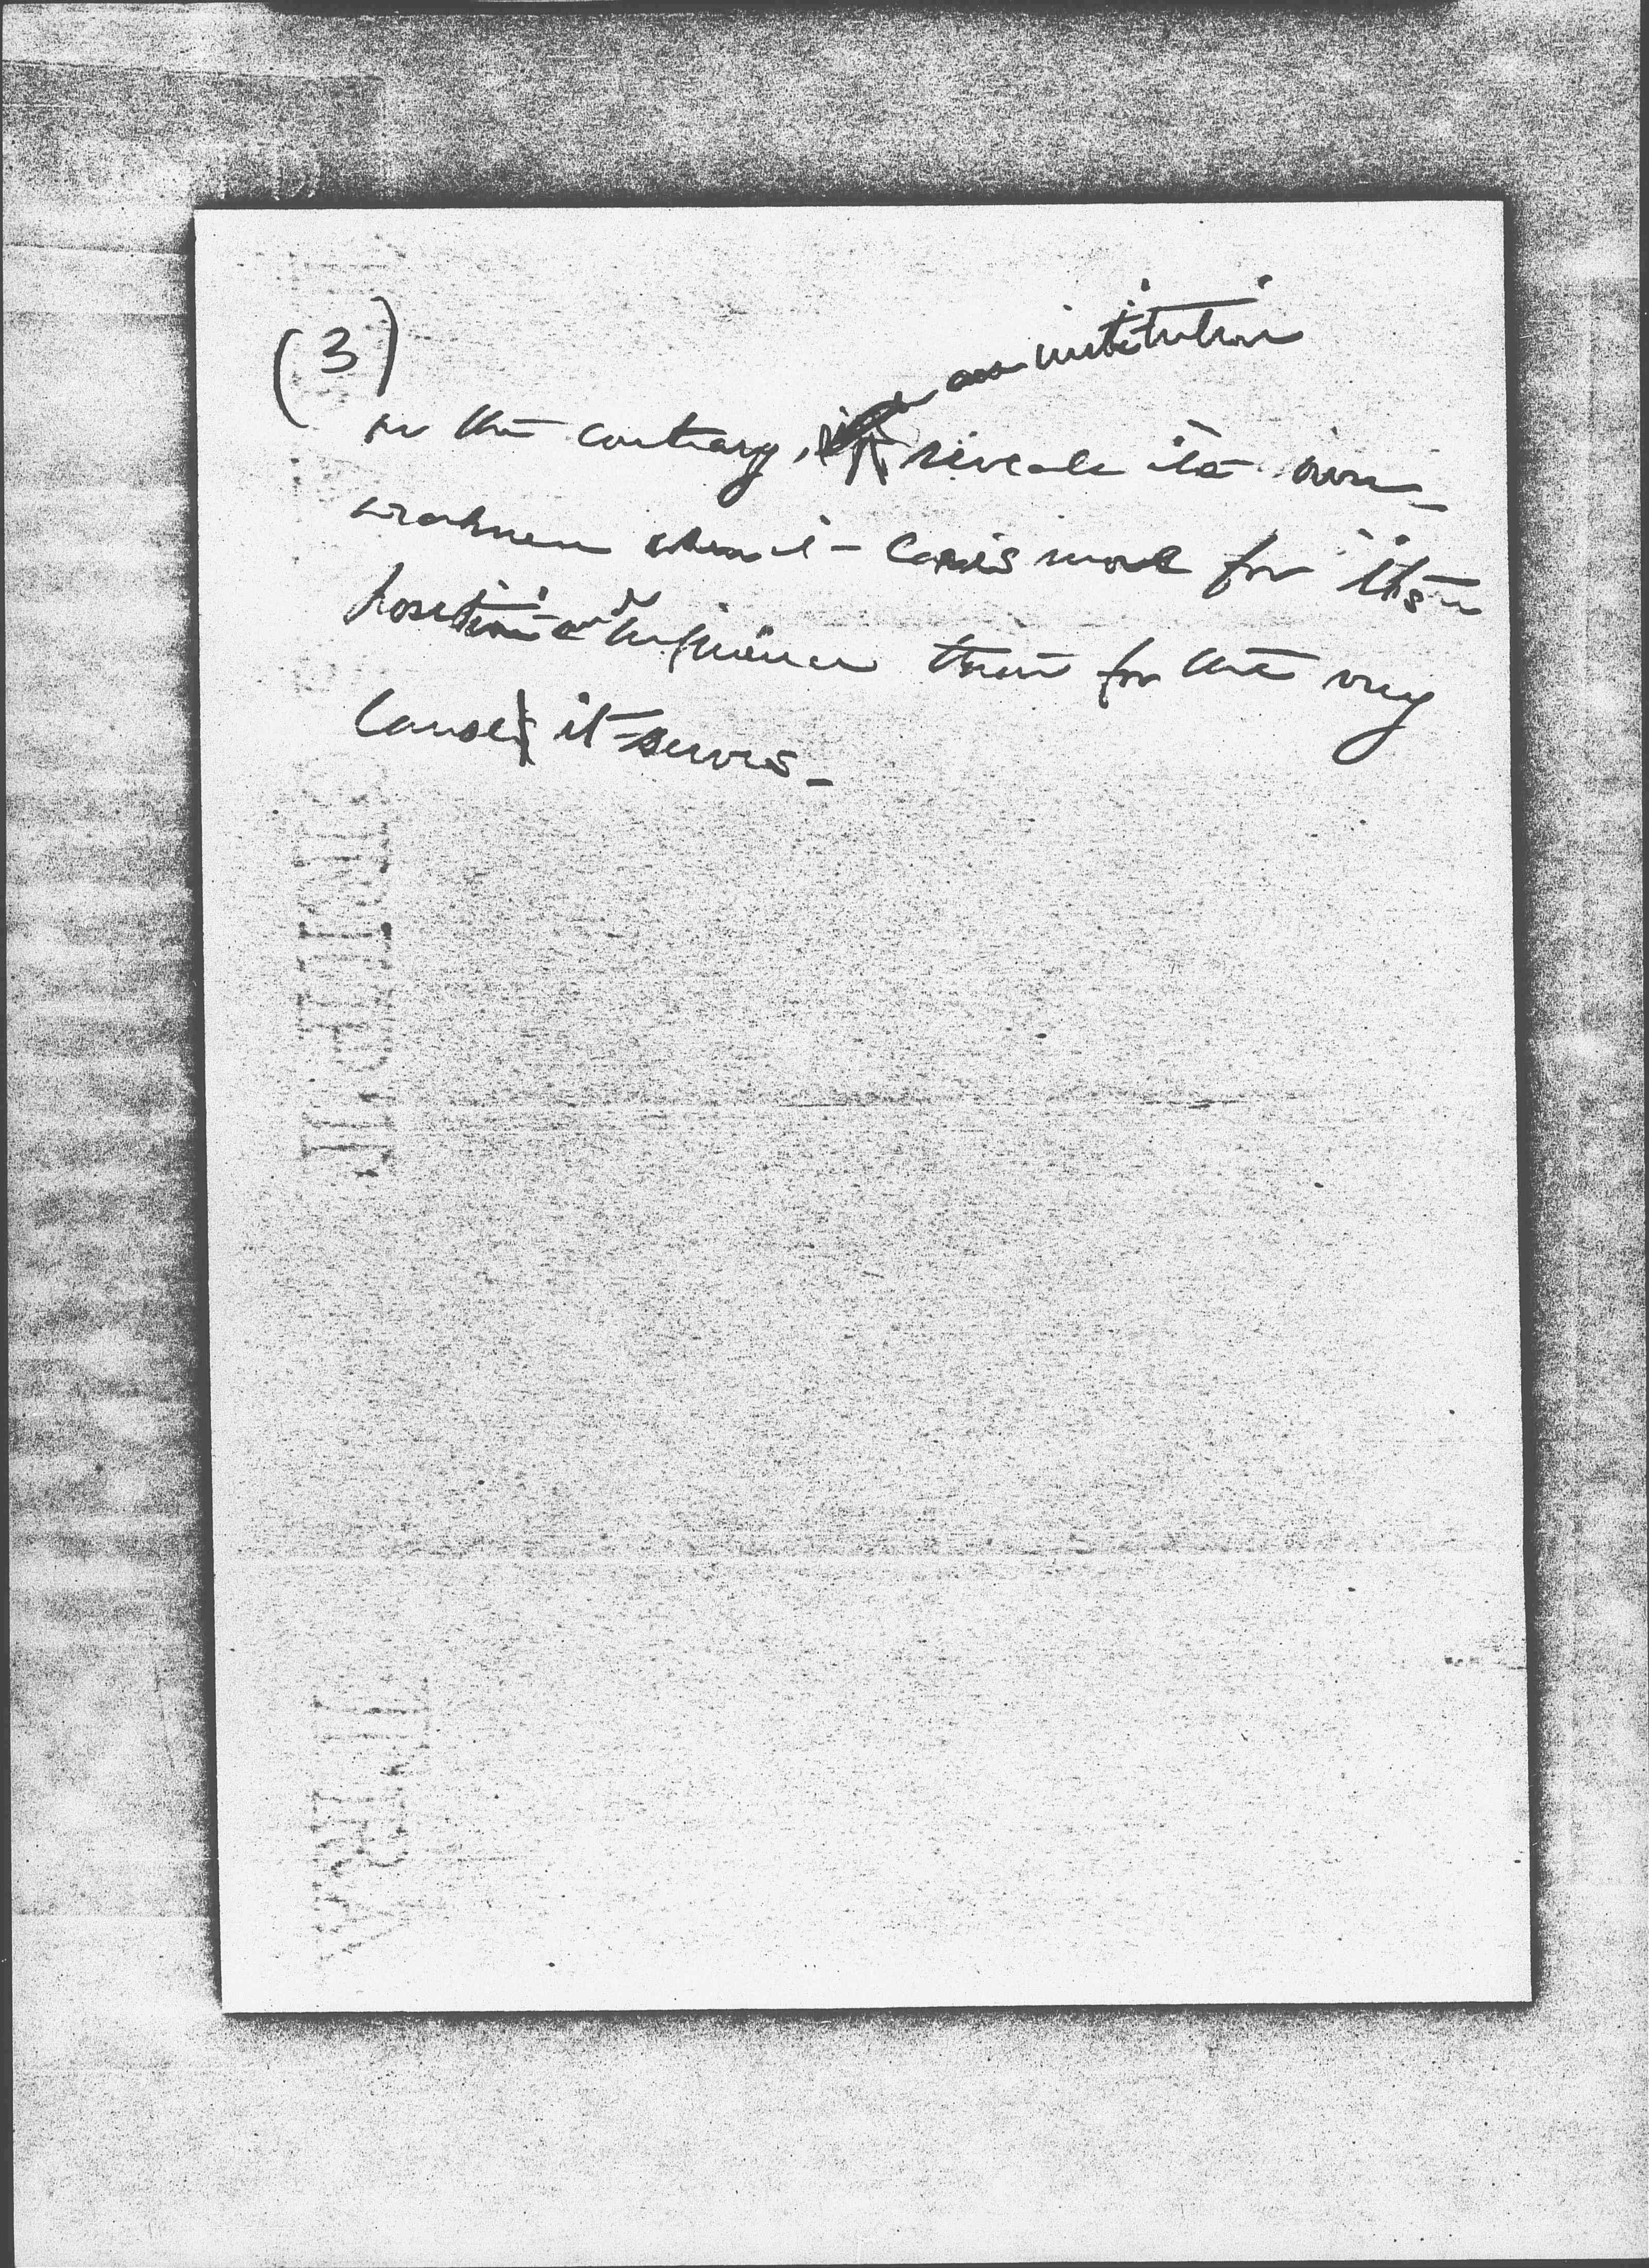 (3)
an institution
on the contrary, reveals its own
weakness when it cares more for its own
position and influence than for the very
cause it serves -